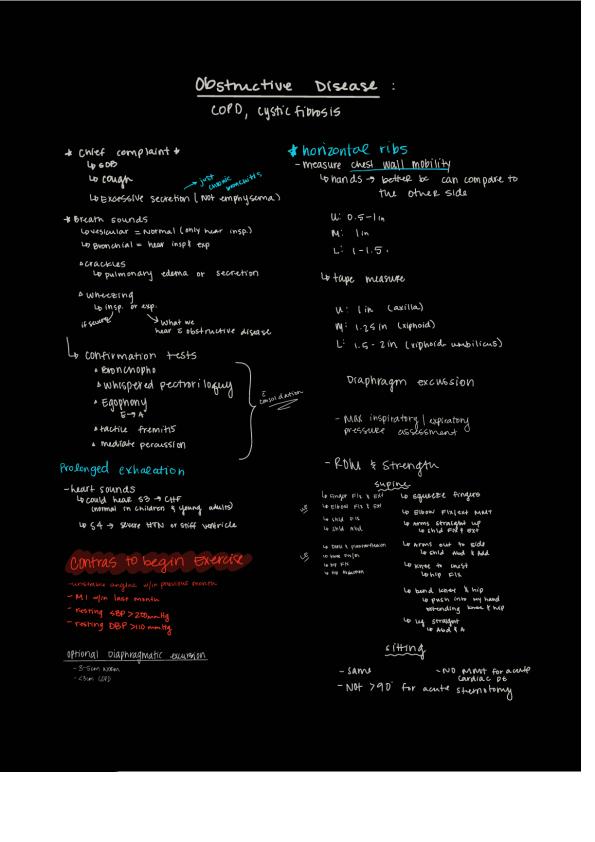 Obstructive Disease :
COPD, cystic fibrosis
* Chief complaint *
↳ SOB
↳ cough
↳ Excessive secretion (Not emphysema)
→ just chronic bronchitis
* Breath sounds
↳ vesicular = Normal (only hear insp.)
↳ Bronchial = hear insp & exp
crackles
↳ pulmonary edema or secretion
wheezing
↳ insp. or exp.
if severe
What we
hear c̄ obstructive disease
↳ Confirmation tests
Bronchopho
Whispered pectoriloquy
Egophony
E → A
tactile fremitis
mediate percussion
c̄ consolidation
Prolonged exhalation
- heart sounds
↳ could hear S3 → CHF
(normal in children & young adults)
↳ S4 → severe HTN or stiff ventricle
Contras to begin Exercise
- unstable angina w/in previous month
- MI w/in last month
- resting SBP > 200 mmHg
- resting DBP > 110 mmHg
optional Diaphragmatic excursion
- 3-5cm norm
- <3cm COPD
* horizontal ribs
- measure chest wall mobility
↳ hands → better bc can compare to
the other side
U: 0.5-1in
M: 1in
L: 1-1.5
↳ tape measure
U: 1in (axilla)
M: 1.25in (xiphoid)
L: 1.5-2in (xiphoid-umbilicus)
Diaphragm excussion
- Max inspiratory / expiratory
pressure assessment
- ROM & Strength
supine
↳ Finger Flx & Ext
↳ Elbow Flx & Ext
↳ shld Abd
↳ hip Flx
↳ squeeze fingers
↳ Elbow Flx/ext MMT
↳ Arms straight up
↳ shld Flx & ext
↳ Arms out to side
↳ shld Abd & Add
↳ knee to chest
↳ hip Flx
↳ bend knee & hip
↳ push into my hand
extending knee & hip
↳ Leg straight
↳ Abd & A
sitting
- same
- NO MMT for acute
cardiac pt
- NOT >90° for acute sternotomy